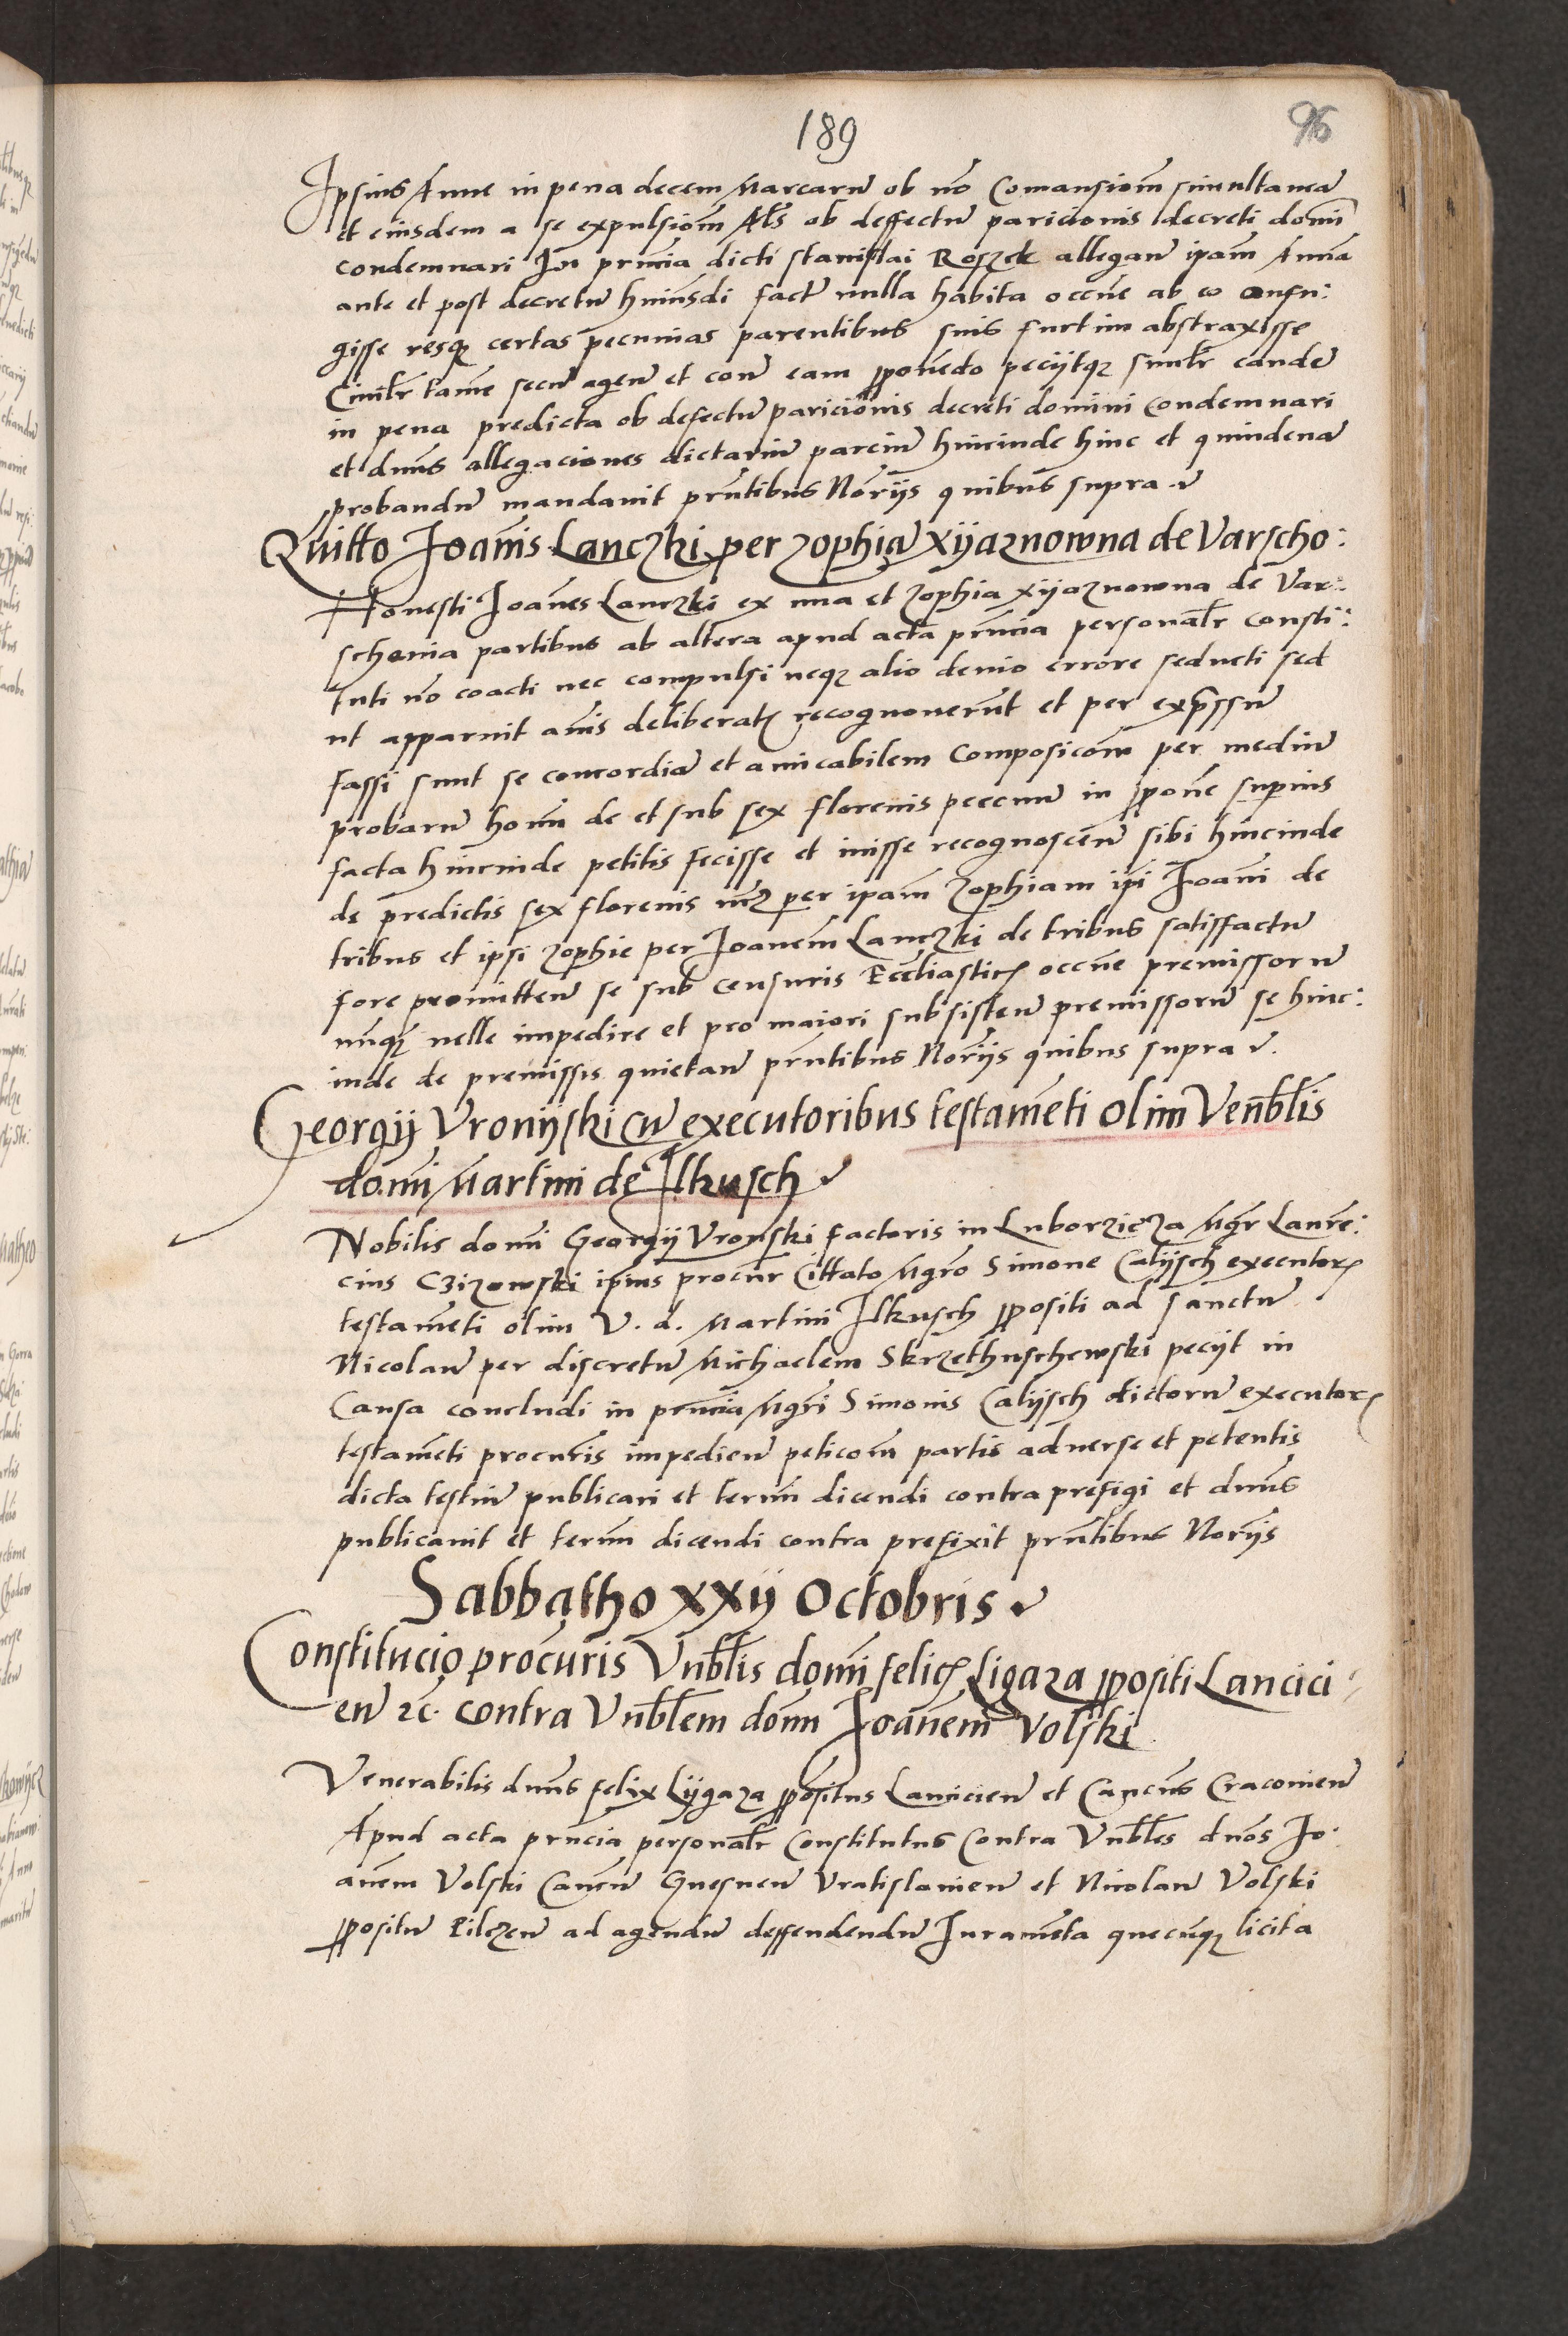 189
96
Ipsius Anne in pena decem Marcarū ob nō Comansionē simultaneā
et eiusdem a se expulsionē Als ob deffectū paricionis decreti domī
condemnari In pn̄cia dicti stanislai Roszek allegan̄ ipam Annā
ante et post decretū huiusdi factū nulla habita occne ab eo aufu:
gisse resqz certas pecunias parentibus suis furtim abstraxisse
Ciuilr tame secū agen̄ et con̄ eam ꝓponēdo peciitqz similr eandē
in pena predicta ob defectū paricionis decreti domini condemnari
et dnus allegaciones dictarū parciū hincinde hinc et quindenā
probandū mandauit pn̄tibus Norijs quibus supra
Quitto Joānis Lanczki per zophiā Xijaznowna de Varscho:
Honesti Joānes Lanczki ex vna et zophia xijaznowna de Var:
schouia partibus ab altera apud acta pn̄cia personalr consti:
tuti nō coacti nec compulsi neqz alio deuio errore seducti sed
ut apparuit anis deliberatꝭ recognouerūt et per expressū
fassi sunt se concordiā et amicabilem composicōm per mediū
probarū homī de et sub sex florenis pecunie in ꝓpone superius
facta hincinde petitis fecisse et inisse recognoscen̄ sibi hincinde
de predictis sex florenis nūc per ipam zophiam ipi Joanni de
tribus et ipsi zophie per Joanem Lanczki de tribus satisffactū
fore promitten̄ se sub censuris Ecclīasticꝭ occne premissorū
nūqz uelle impedire et pro maiori subsisten̄ premissorū se hinc:
inde de premissis quietan̄ pn̄tibus Norijs quibus supra
Georgij Vronijski cū executoribus testamēti olim Venblis
domī Martini de Ilkusch
Nobilis domī Georgij Vronski factoris in Luborzicza Mgr Laurē:
cius Czizowski ipius procur Cittato Mgro Simone Calijsch executorꝭ
testamēti olim V. d. Martini Ilkusch ꝓpositi ad sanctū
Nicolaū per discretū Michaelem Skrzethuschewski peciit in
Causa concludi in pn̄cia Mgri Simonis Calijsch dictorū executorꝭ
testamēti procuris impedien̄ peticōm partis aduerse et petentis
dicta testiū publicari et termī dicendi contra prefigi et dnus
publicauit et termī dicendi contra prefixit pn̄tibus Norijs
Sabbatho xxij Octobris
Constitucio procuris Vnblis domī felicꝭ Ligaza ꝓpositi Lancici
en̄ zc. contra Vnblem domī Joānem Volski
Venerabilis dnus felix Lijgaza ꝓpositus Lancicien̄ et Canc̄us Cracouien̄
Apud acta pn̄cia personalr Constitutus Contra Vnbles dnōs Jo.
anem Volski Canc̄ū Gnesnen̄ Vratislauien̄ et Nicolaū Volski
ꝓpositū Pilczen̄ ad agendū deffendendū Iuramēta quecūqz licita